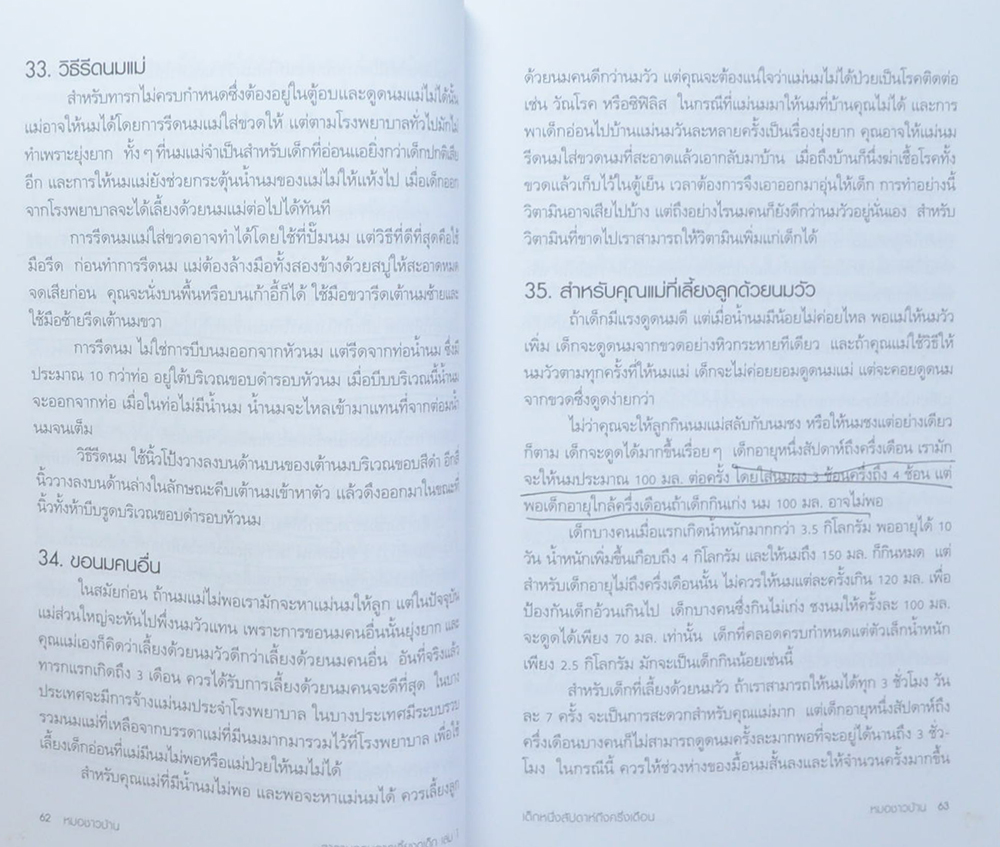 33. วิธีรีดนมแม่
สำหรับทารกไม่ครบกำหนดซึ่งต้องอยู่ในตู้อบและดูดนมแม่ไม่ได้นั้น
แม่อาจให้นมได้โดยการรีดนมแม่ใส่ขวดให้ แต่ตามโรงพยาบาลทั่วไปมักไม่
ทำเพราะยุ่งยาก ทั้งๆ ที่นมแม่จำเป็นสำหรับเด็กที่อ่อนแอยิ่งกว่าเด็กปกติเสีย
อีก และการให้นมแม่ยังช่วยกระตุ้นน้ำนมของแม่ไม่ให้แห้งไป เมื่อเด็กออก
จากโรงพยาบาลจะได้เลี้ยงด้วยนมแม่ต่อไปได้ทันที
การรีดนมแม่ใส่ขวดอาจทำได้โดยใช้ที่ปั๊มนม แต่วิธีที่ดีที่สุดคือใช้
มือรีด ก่อนทำการรีดนม แม่ต้องล้างมือทั้งสองข้างด้วยสบู่ให้สะอาดหมด
จดเสียก่อน คุณจะนั่งบนพื้นหรือบนเก้าอี้ก็ได้ ใช้มือขวารีดเต้านมซ้ายและ
ใช้มือซ้ายรีดเต้านมขวา
การรีดนม ไม่ใช่การบีบนมออกจากหัวนม แต่รีดจากท่อน้ำนม ซึ่งมี
ประมาณ 10 กว่าท่อ อยู่ใต้บริเวณขอบดำรอบหัวนม เมื่อบีบบริเวณนี้น้ำนม
จะออกจากท่อ เมื่อในท่อไม่มีน้ำนม น้ำนมจะไหลเข้ามาแทนที่จากต่อมน้ำ
นมจนเต็ม
วิธีรีดนม ใช้นิ้วโป้งวางลงบนด้านบนของเต้านมบริเวณขอบสีดำ อีกสี่
นิ้ววางลงบนด้านล่างในลักษณะคีบเต้านมเข้าหาตัว แล้วดึงออกมาในขณะที่
นิ้วทั้งห้าบีบรูดบริเวณขอบดำรอบหัวนม
34. ขอนมคนอื่น
ในสมัยก่อน ถ้านมแม่ไม่พอเรามักจะหาแม่นมให้ลูก แต่ในปัจจุบัน
แม่ส่วนใหญ่จะหันไปพึ่งนมวัวแทน เพราะการขอนมคนอื่นนั้นยุ่งยาก และ
คุณแม่เองก็คิดว่าเลี้ยงด้วยนมวัวดีกว่าเลี้ยงด้วยนมคนอื่น อันที่จริงแล้ว
ทารกแรกเกิดถึง 3 เดือน ควรได้รับการเลี้ยงด้วยนมคนจะดีที่สุด ในบาง
ประเทศจะมีการจ้างแม่นมประจำโรงพยาบาล ในบางประเทศมีระบบรวบ
รวมนมแม่ที่เหลือจากบรรดาแม่ที่มีนมมากมารวมไว้ที่โรงพยาบาล เพื่อใช้
เลี้ยงเด็กอ่อนที่แม่มีนมไม่พอหรือแม่ป่วยให้นมไม่ได้
สำหรับคุณแม่ที่มีน้ำนมไม่พอ และพอจะหาแม่นมได้ ควรเลี้ยงลูก
62 หมอชาวบ้าน
ด้วยนมคนดีกว่านมวัว แต่คุณจะต้องแน่ใจว่าแม่นมไม่ได้ป่วยเป็นโรคติดต่อ
เช่น วัณโรค หรือซิฟิลิส ในกรณีที่แม่นมมาให้นมที่บ้านคุณไม่ได้ และการ
พาเด็กอ่อนไปบ้านแม่นมวันละหลายครั้งเป็นเรื่องยุ่งยาก คุณอาจให้แม่นม
รีดนมใส่ขวดนมที่สะอาดแล้วเอากลับมาบ้าน เมื่อถึงบ้านก็นึ่งฆ่าเชื้อโรคทั้ง
ขวดแล้วเก็บไว้ในตู้เย็น เวลาต้องการจึงเอาออกมาอุ่นให้เด็ก การทำอย่างนี้
วิตามินอาจเสียไปบ้าง แต่ถึงอย่างไรนมคนก็ยังดีกว่านมวัวอยู่นั่นเอง สำหรับ
วิตามินที่ขาดไปเราสามารถให้วิตามินเพิ่มแก่เด็กได้
35. สำหรับคุณแม่ที่เลี้ยงลูกด้วยนมวัว
ถ้าเด็กมีแรงดูดนมดี แต่เมื่อน้ำนมมีน้อยไม่ค่อยไหล พอแม่ให้นมวัว
เพิ่ม เด็กจะดูดนมจากขวดอย่างหิวกระหายทีเดียว และถ้าคุณแม่ใช้วิธีให้
นมวัวตามทุกครั้งที่ให้นมแม่ เด็กจะไม่ค่อยยอมดูดนมแม่ แต่จะคอยดูดนม
จากขวดซึ่งดูดง่ายกว่า
ไม่ว่าคุณจะให้ลูกกินนมแม่สลับกับนมชง หรือให้นมชงแต่อย่างเดียว
ก็ตาม เด็กจะดูดได้มากขึ้นเรื่อยๆ เด็กอายุหนึ่งสัปดาห์ถึงครึ่งเดือน เรามัก
จะให้นมประมาณ 100 มล. ต่อครั้ง โดยใส่นมผง 3 ช้อนครึ่งถึง 4 ช้อน แต่
พอเด็กอายุใกล้ครึ่งเดือนถ้าเด็กกินเก่ง นม 100 มล. อาจไม่พอ
เด็กบางคนเมื่อแรกเกิดน้ำหนักมากกว่า 3.5 กิโลกรัม พออายุได้ 10
วัน น้ำหนักเพิ่มขึ้นเกือบถึง 4 กิโลกรัม และให้นมถึง 150 มล. ก็กินหมด แต่
สำหรับเด็กอายุไม่ถึงครึ่งเดือนนั้น ไม่ควรให้นมแต่ละครั้งเกิน 120 มล. เพื่อ
ป้องกันเด็กอ้วนเกินไป เด็กบางคนซึ่งกินไม่เก่ง ชงนมให้ครั้งละ 100 มล.
จะดูดได้เพียง 70 มล. เท่านั้น เด็กที่คลอดครบกำหนดแต่ตัวเล็กน้ำหนัก
เพียง 2.5 กิโลกรัม มักจะเป็นเด็กกินน้อยเช่นนี้
สำหรับเด็กที่เลี้ยงด้วยนมวัว ถ้าเราสามารถให้นมได้ทุก 3 ชั่วโมง วัน
ละ 7 ครั้ง จะเป็นการสะดวกสำหรับคุณแม่มาก แต่เด็กอายุหนึ่งสัปดาห์ถึง
ครึ่งเดือนบางคนก็ไม่สามารถดูดนมครั้งละมากพอที่จะอยู่ได้นานถึง 3 ชั่ว-
โมง ในกรณีนี้ ควรให้ช่วงห่างของมื้อนมสั้นลงและให้จำนวนครั้งมากขึ้น
เด็กหนึ่งสัปดาห์ถึงครึ่งเดือน
หมอชาวบ้าน 63